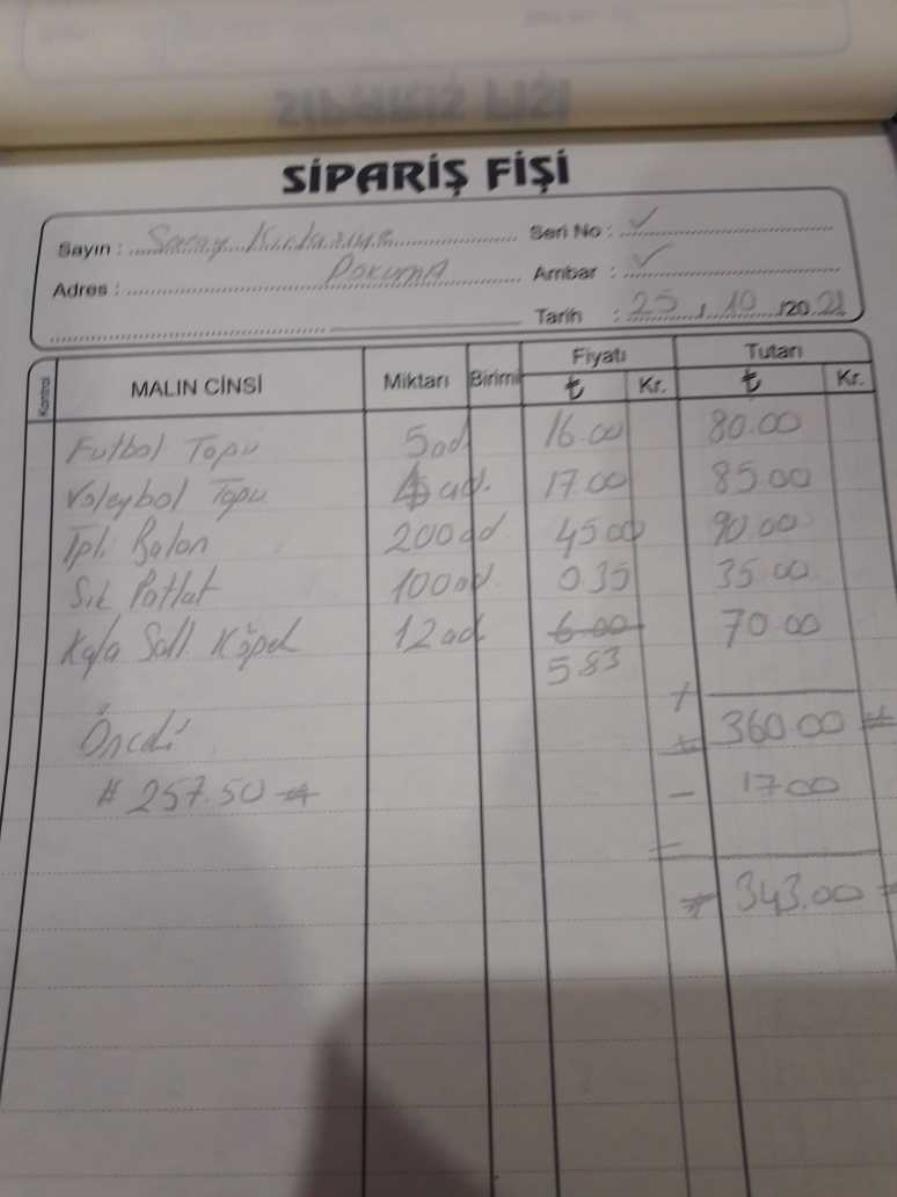 SİPARİŞ FİŞİ
Sayın : Saray Kırtasiye Seri No : ✓
Adres : DOKUMA Ambar : ✓
Tarih : 25 / 10 /20 21
Kontrol MALIN CİNSİ Miktarı Birimi Fiyatı Tutarı
₺ Kr. ₺ Kr.
Futbol Topu 5 ad. 16.00 80.00
Voleybol Topu ad. 17.00 85.00
İpli Balon 200 ad 45.00 90.00
Sık Patlat 100 ad 0.35 35.00
Kafa Sall. Köpek 12 ad 6.00 70.00
5.83
Önceki + # 360.00 #
# 257.50 # - 17.00
# 343.00 #